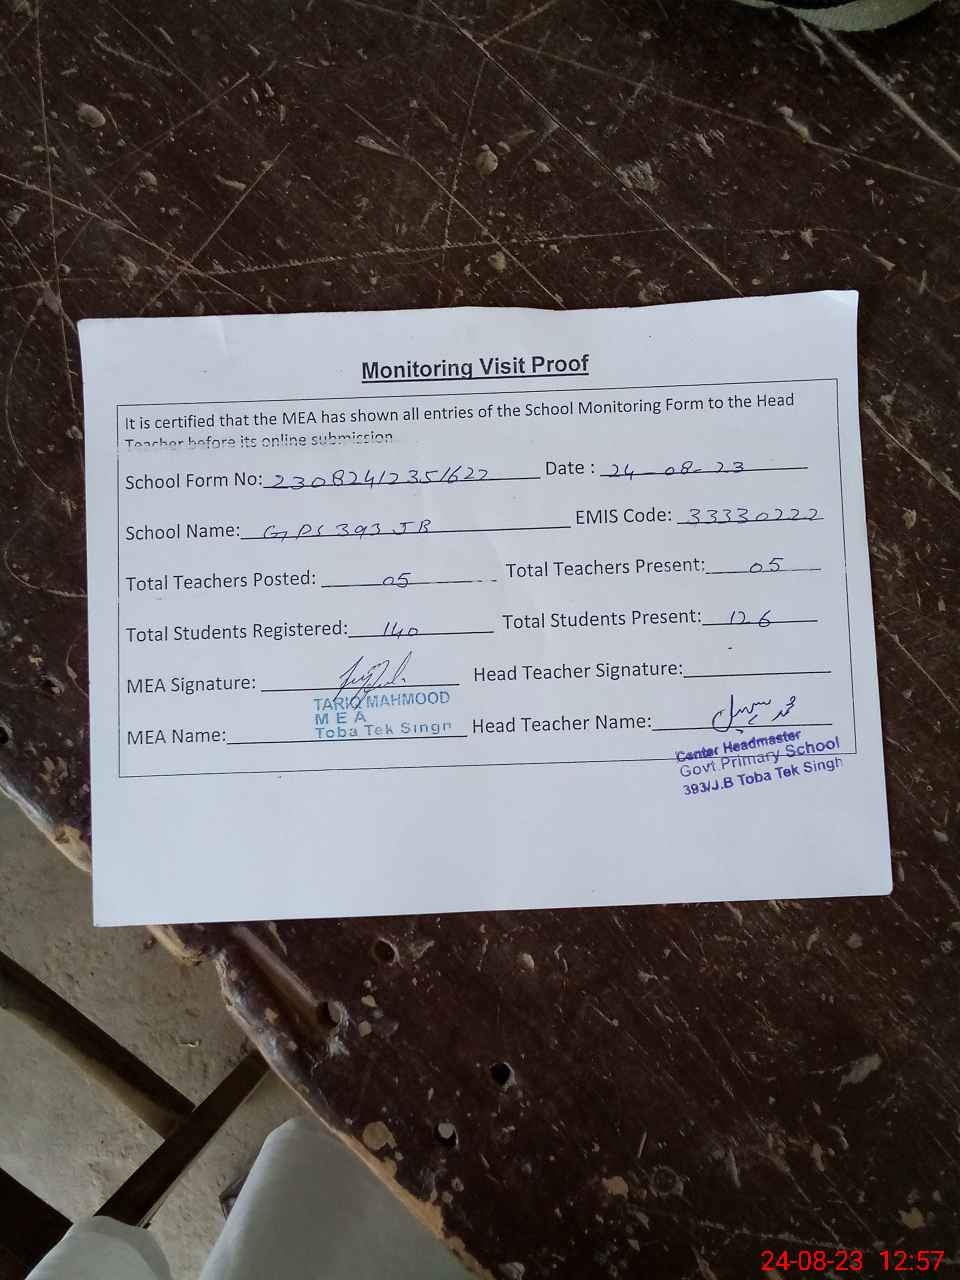 Monitoring Visit Proof
It is certified that the MEA has shown all entries of the School Monitoring Form to the Head
Teacher before its online submission
School Form No: 23082412351622 Date : 24-08-23
School Name: GPS 393 JB EMIS Code: 33330222
Total Teachers Posted: 05 Total Teachers Present: 05
Total Students Registered: 140 Total Students Present: 126
MEA Signature: Head Teacher Signature:
TARIQ MAHMOOD
M E A
Toba Tek Singh
MEA Name: Head Teacher Name:
Center Headmaster
Govt Primary School
393/J.B Toba Tek Singh
24-08-23 12:57